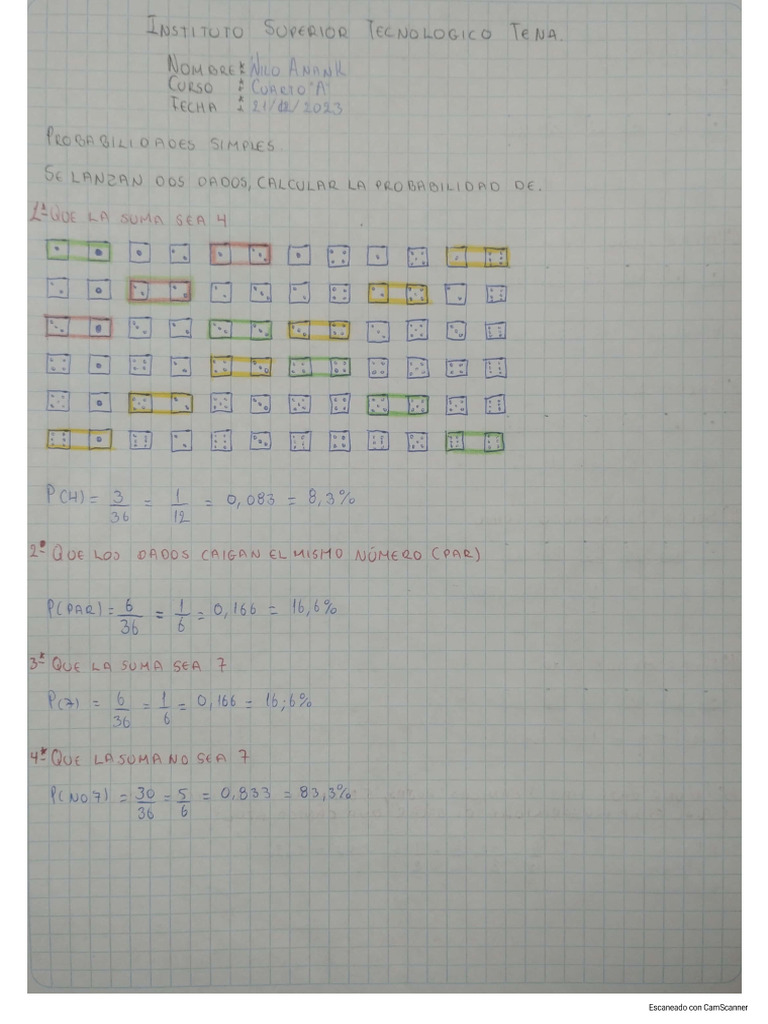 INSTITUTO SUPERIOR TECNOLOGICO TENA.
NOMBRE: NILO ANANK
CURSO : CUARTO "A"
FECHA : 21/12/2023
PROBABILIDADES SIMPLES
SE LANZAN DOS DADOS, CALCULAR LA PROBABILIDAD DE.
1ª QUE LA SUMA SEA 4
P(4) = 3/36 = 1/12 = 0,083 = 8,3%
2ª QUE LOS DADOS CAIGAN EL MISMO NÚMERO (PAR)
P(PAR) = 6/36 = 1/6 = 0,166 = 16,6%
3ª QUE LA SUMA SEA 7
P(7) = 6/36 = 1/6 = 0,166 = 16,6%
4ª QUE LA SUMA NO SEA 7
P(NO7) = 30/36 = 5/6 = 0,833 = 83,3%
Escaneado con CamScanner